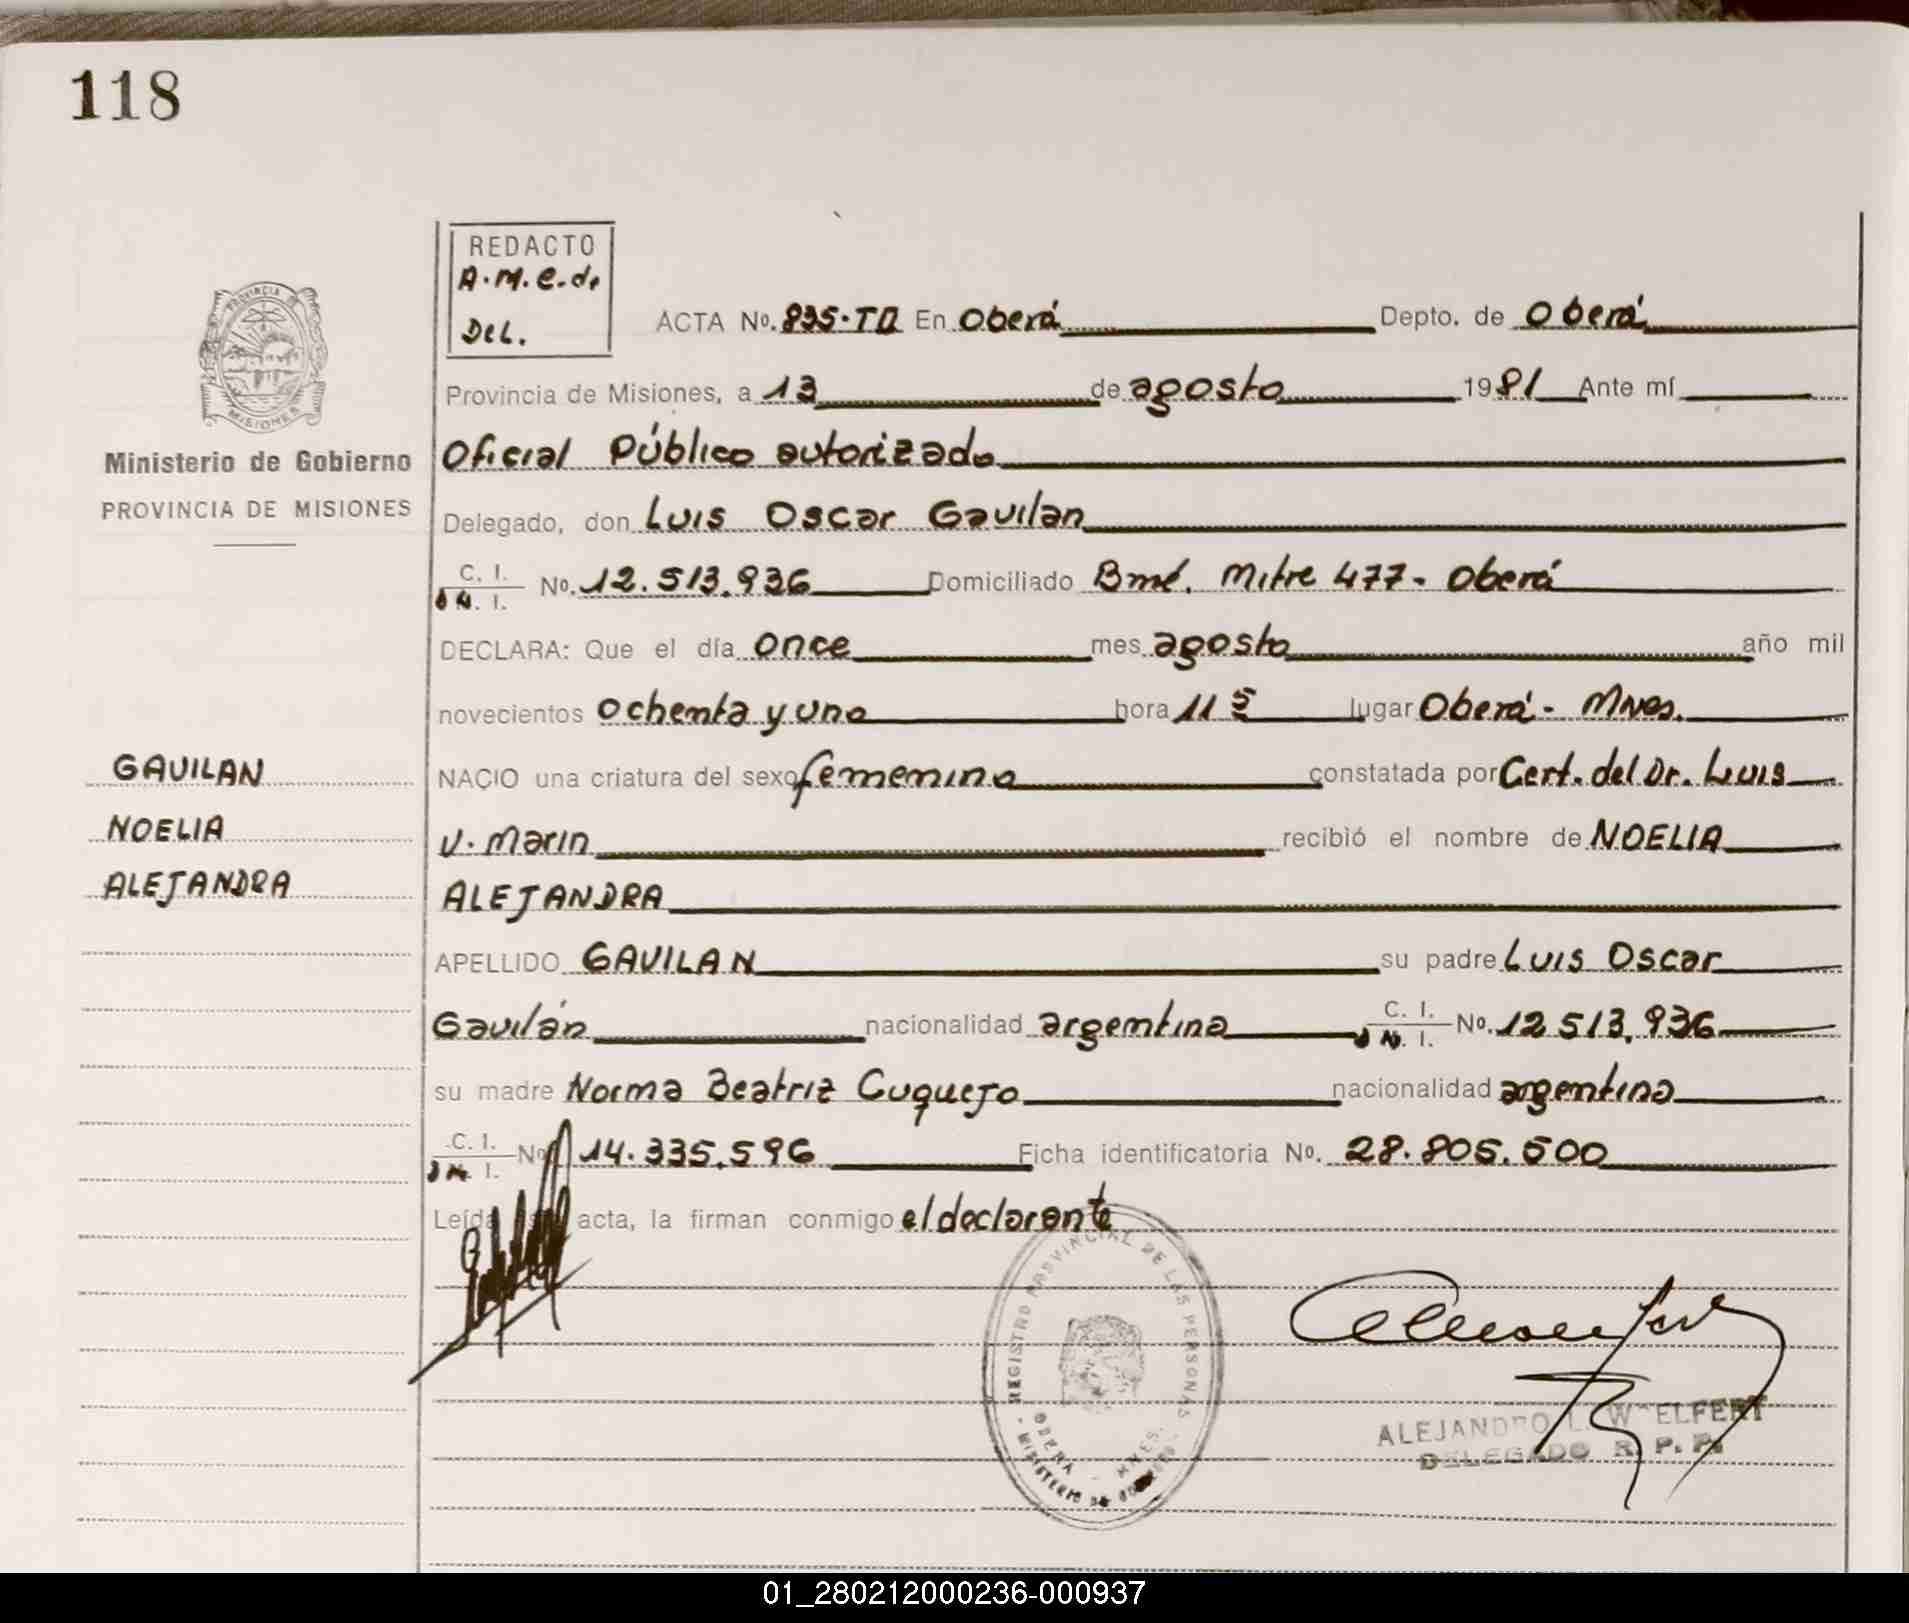 118
REDACTO
A.M.e.d.
DEL.
PROVINCIA DE
MISIONES
Ministerio de Gobierno
PROVINCIA DE MISIONES
ACTA No. 835-TII En Oberá Depto. de Oberá
Provincia de Misiones, a 13 de agosto 1981 Ante mí
Oficial Público autorizado
Delegado, don Luis Oscar Gavilan
C. I. No. 12.513.936 Domiciliado Bmé. Mitre 477- Oberá
N. I.
DECLARA: Que el día once mes agosto año mil
novecientos ochenta y uno hora 11 5 lugar Oberá- Mnes.
GAVILAN
NACIO una criatura del sexo femenino constatada por Cert. del Dr. Luis
NOELIA
V. Marin recibió el nombre de NOELIA
ALEJANDRA
ALEJANDRA
APELLIDO GAVILAN su padre Luis Oscar
Gavilán nacionalidad argentina C. I. No. 12 513.936
N. I.
su madre Norma Beatriz Cuquejo nacionalidad argentina
C. I. No 14.335.596 Ficha identificatoria No. 28.805.500
I.
Leída acta, la firman conmigo el declarante
REGISTRO PROVINCIAL DE LAS PERSONAS
OBERA - MNES.
MINISTERIO DE
ALEJANDRO L. WOELFERT
DELEGADO R. P. P.
01_280212000236-000937